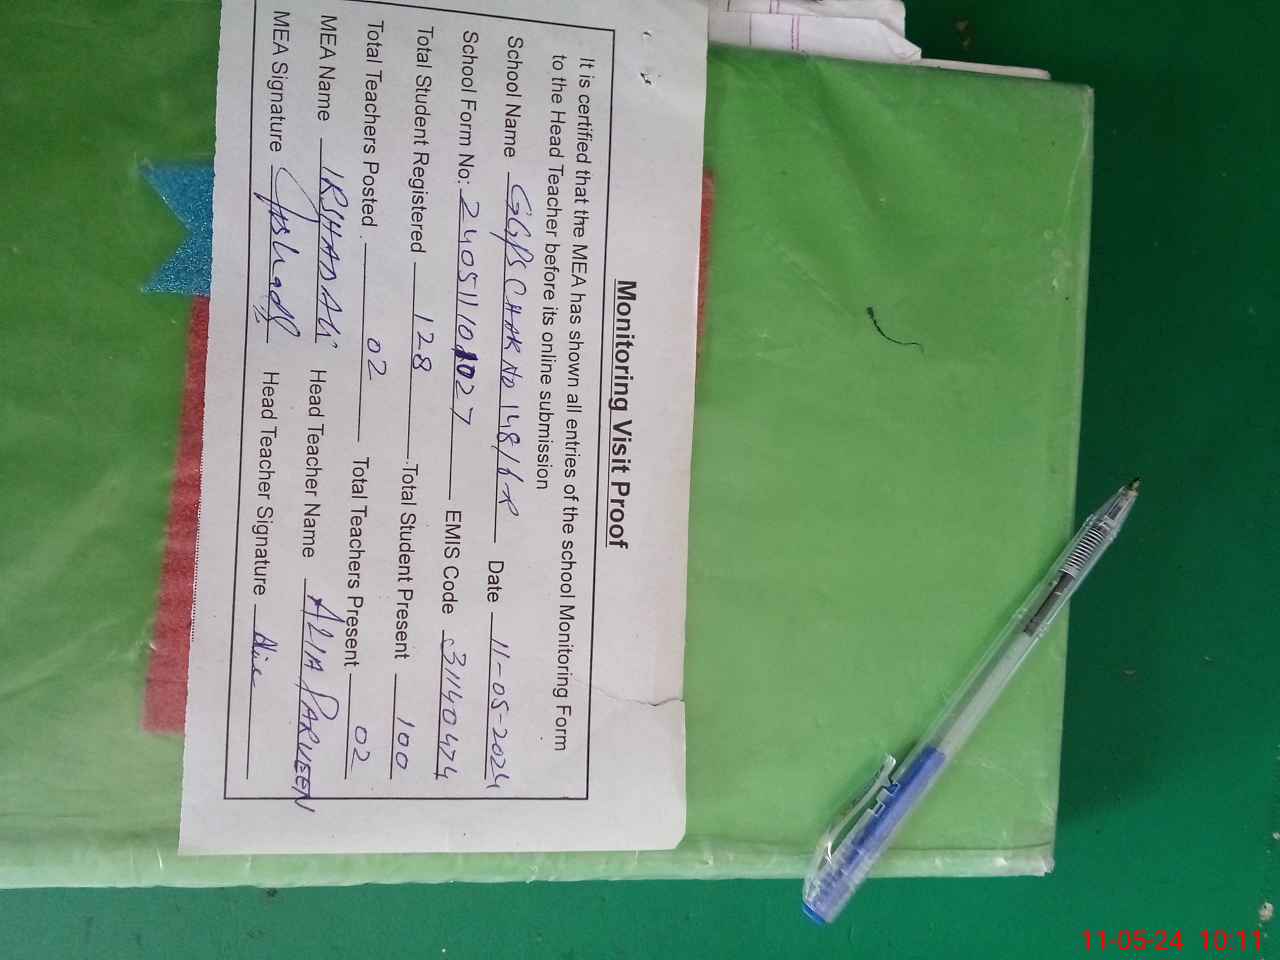 Monitoring Visit Proof
It is certified that the MEA has shown all entries of the school Monitoring Form
to the Head Teacher before its online submission
School Name GGPS CHAK No 148/6-R Date 11-05-2024
School Form No: 24051101027 EMIS Code 31140474
Total Student Registered 128 Total Student Present 100
Total Teachers Posted 02 Total Teachers Present 02
MEA Name IRSHAD Ali Head Teacher Name ALIA PARVEEN
MEA Signature Irshad Head Teacher Signature Alia
11-05-24 10:11